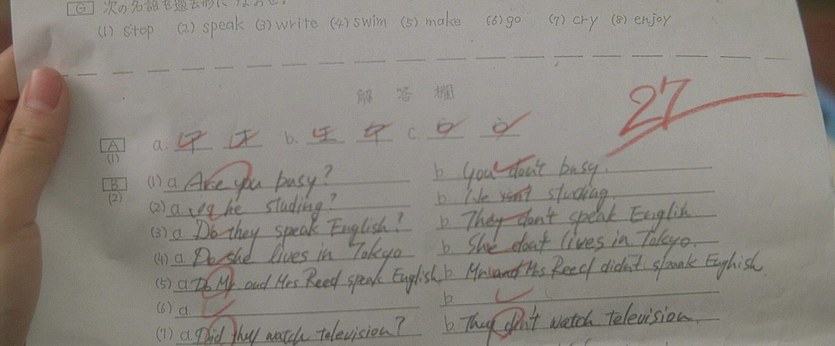 G 次の名詞を過去形に
(1) stop (2) speak (3) write (4) swim (5) make (6) go (7) cry (8) enjoy
解答欄
27
A (1) a. b. c.
B (2) (1) a Are you busy? b You don't busy.
(2) a he studing? b studing
(3) a Do they speak English? b They don't speak English
(4) a Do she lives in Tokyo b She dont lives in Tokyo.
(5) a Do Mr and Mrs Reed speak English b Mr and Mrs Reed didn't speak English.
(6) a b
(7) a Did they watch television? b They don't watch television.